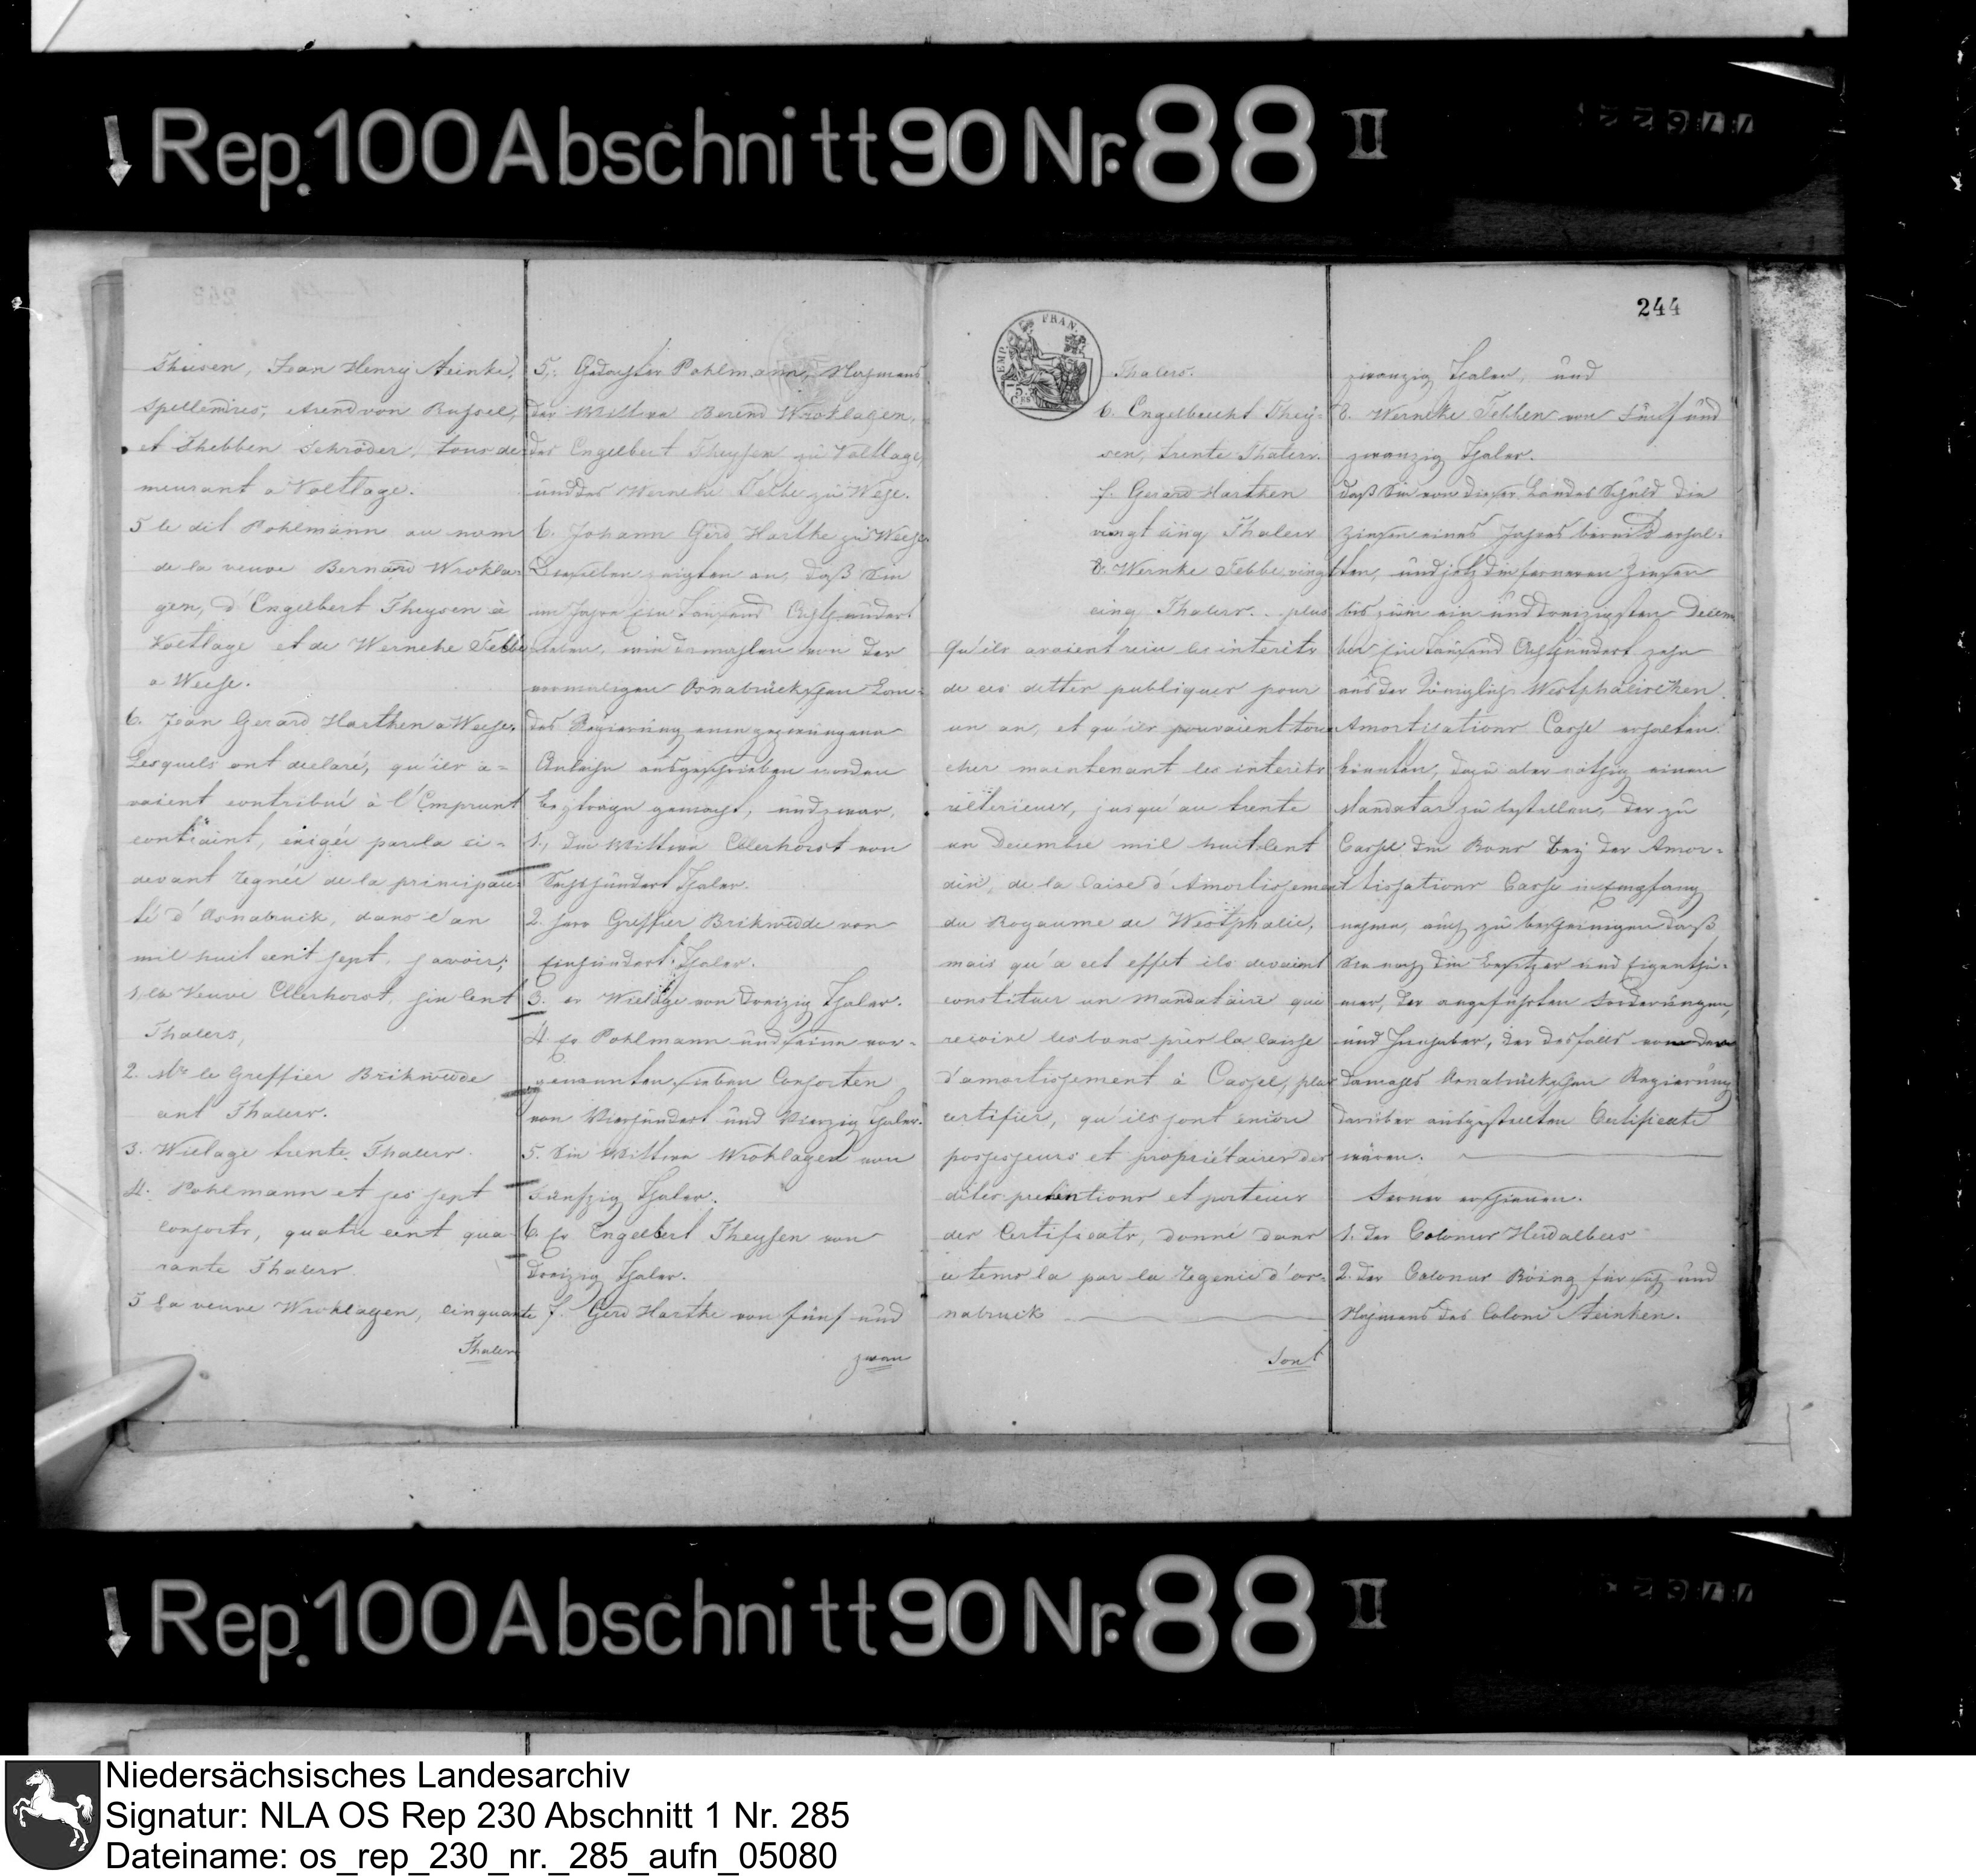 Rep. 100 Abschnitt 90 Nr. 88 II
244
Theisen, Jean Henry Steinke,
et Thebben Schröder, tous de-
meurant a Voltlage.
5 le dit Pohlmann au nom
de la veuve Bernard Wrokla
gen, d'Engelbert Theysen à
Voltlage et de Werneke Tebbe
a Weese.
6. Jean Gerard Harthen a Weese.
Lesquels ont declaré, qu'ils a-
vaient contribué à l'Emprunt
contraint, exigée par la ci-
devant regnée de la principau
té d'Osnabruck, dans l'an
mil huit cent sept, savoir;
1, la Veuve Ellerhorst, six Cent
Thalers,
2. Mr le Greffier Brikwedde
cent Thalers.
3. Wielage trente Thalers.
4. Pohlmann et ses sept
Consorts, quatre cent qua
rante Thalers
5 la veuve Wroklagen, cinquante
Thalers
5, Gedachter Pohlmann, Nahmens
der Wittwe Berend Wroklagen,
des Engelbert Theysen zu Voltlage,
und des Werneke Tebbe zu Weese.
6. Johann Gerd Hartke zu Weese.
Dieselben zeigten an, daß Sie
im Jahre Ein Tausend Achthundert
sieben, wie dermahlen von der
vormaligen Osnabrückschen Lan-
des Regierung eine gezwungene
Anleihe ausgeschrieben worden
Beyträge gemacht, und zwar,
1, die Wittwe Ellerhorst von
Sechshundert Thaler.
2. Herr Greffier Brikwedde von
Einhundert Thaler.
3. er Wielage von dreizig Thaler.
4. er Pohlmann und seine vor-
genannten sieben Consorten
von Vierhundert und Vierzig Thaler.
5. die Wittwe Wroklagen von
Fünfzig Thaler.
6. er Engelbert Theysen von
dreizig Thaler.
7. Gerd Hartke von fünf und
zwan
EMP. FRAN.
Thalers.
6. Engelbrecht They-
sen, trente Thalers.
7. Gerard Harthen
vingt cinq Thalers
8. Wernke Tebbe vingt
cinq Thalers. plus
qu'ils avaient reçu les interets
de ces dettes publiques pour
un an, et qu'ils pouvaient tou
cher maintenant les interets
ulterieurs, jusqu'au trente
un Decembre mil huit cent
dix, de la Caise d'Amortissement
du Royaume de Westphalie,
mais qu'a cet effet ils devaient
constituer un Mandataire qui
recoive les bons près la Caisse
d'amortissement à Cassel, plus
certifier, qu'ils sont encore
possesseurs et propriétaires des
dites pretentions et porteurs
des Certificats, donné dans
ce tems la par la regence d'os-
nabruck
Sont
zwanzig Thaler, und
8. Werneke Tebben von Fünf und
zwanzig Thaler.
daß Sie von dieser Landes Schuld die
Zinsen eines Jahres bereits erhal-
ten, und jetz die ferneren Zinsen
bis zum ein und dreizigsten Decem
ber Ein Tausend Achthundert zehn
aus der Königlich Westphälischen
Amortisations Casse erhalten
könnten, dazu aber nöthig einen
Mandatar zu bestellen, der zu
Cassel die Bons bey der Amor-
tisations Casse in Empfang
nehme, auch zu bescheinigen daß
Sie noch die Besitzer und Eigenthü-
mer, der angeführten Forderungen,
und Inhaber, der desfalls von der
damahls Osnabrückschen Regierung
darüber ausgestellten Certificate
wären.
Ferner erschienen.
1. der Colonus Heidalbers
2. der Colonus Böing für sich und
Nahmens des Coloni Steinken.
Rep. 100 Abschnitt 90 Nr. 88 II
Niedersächsisches Landesarchiv
Signatur: NLA OS Rep 230 Abschnitt 1 Nr. 285
Dateiname: os_rep_230_nr._285_aufn_05080